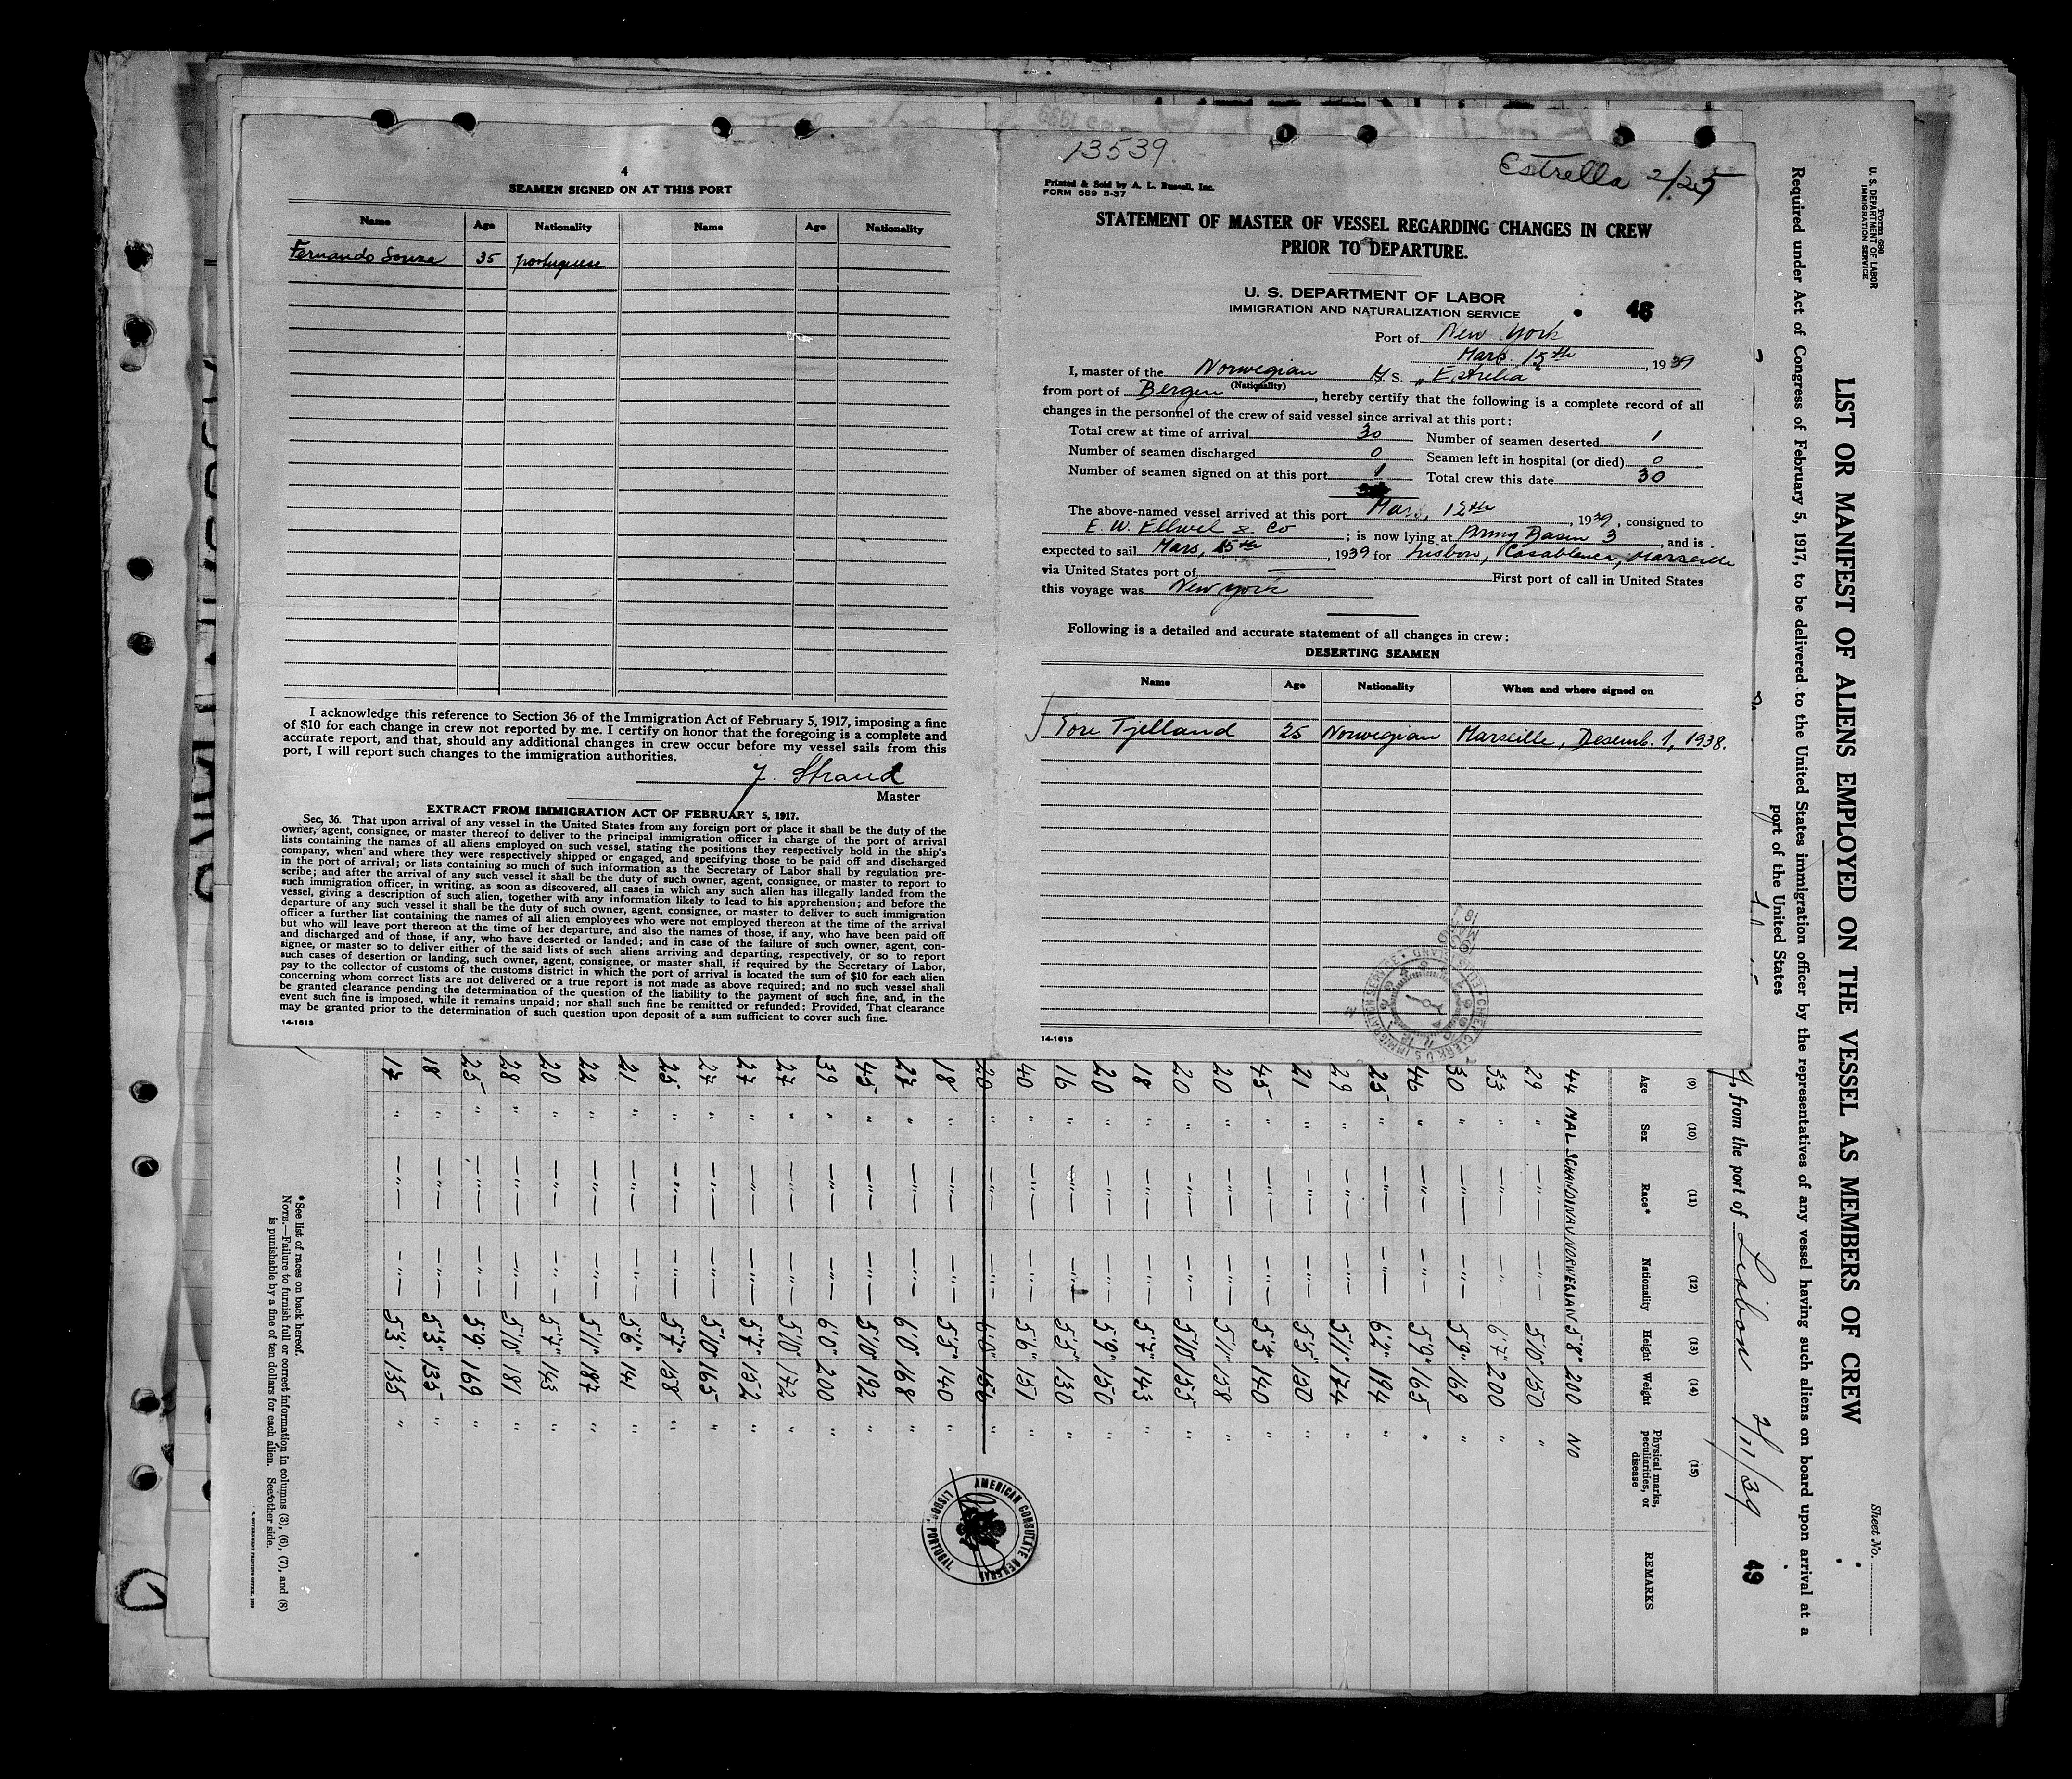 4
SEAMEN SIGNED ON AT THIS PORT
Name Age Nationality Name Age Nationality
Fernando Souza 35 portuguese
I acknowledge this reference to Section 36 of the Immigration Act of February 5, 1917, imposing a fine
of $10 for each change in crew not reported by me. I certify on honor that the foregoing is a complete and
accurate report, and that, should any additional changes in crew occur before my vessel sails from this
port, I will report such changes to the immigration authorities.
J. Strand
Master
EXTRACT FROM IMMIGRATION ACT OF FEBRUARY 5, 1917.
Sec. 36. That upon arrival of any vessel in the United States from any foreign port or place it shall be the duty of the
owner, agent, consignee, or master thereof to deliver to the principal immigration officer in charge of the port of arrival
lists containing the names of all aliens employed on such vessel, stating the positions they respectively hold in the ship's
company, when and where they were respectively shipped or engaged, and specifying those to be paid off and discharged
in the port of arrival; or lists containing so much of such information as the Secretary of Labor shall by regulation pre-
scribe; and after the arrival of any such vessel it shall be the duty of such owner, agent, consignee, or master to report to
such immigration officer, in writing, as soon as discovered, all cases in which any such alien has illegally landed from the
vessel, giving a description of such alien, together with any information likely to lead to his apprehension; and before the
departure of any such vessel it shall be the duty of such owner, agent, consignee, or master to deliver to such immigration
officer a further list containing the names of all alien employees who were not employed thereon at the time of the arrival
but who will leave port thereon at the time of her departure, and also the names of those, if any, who have been paid off
and discharged and of those, if any, who have deserted or landed; and in case of the failure of such owner, agent, con-
signee, or master so to deliver either of the said lists of such aliens arriving and departing, respectively, or so to report
such cases of desertion or landing, such owner, agent, consignee, or master shall, if required by the Secretary of Labor,
pay to the collector of customs of the customs district in which the port of arrival is located the sum of $10 for each alien
concerning whom correct lists are not delivered or a true report is not made as above required; and no such vessel shall
be granted clearance pending the determination of the question of the liability to the payment of such fine, and, in the
event such fine is imposed, while it remains unpaid; nor shall such fine be remitted or refunded: Provided, That clearance
may be granted prior to the determination of such question upon deposit of a sum sufficient to cover such fine.
14-1613
13539
Estrella 2/25
Printed & Sold by A. L. Russell, Inc.
FORM 689 5-37
STATEMENT OF MASTER OF VESSEL REGARDING CHANGES IN CREW
PRIOR TO DEPARTURE.
U. S. DEPARTMENT OF LABOR
IMMIGRATION AND NATURALIZATION SERVICE
Port of New York
Mars 15th, 1939
I, master of the Norwegian M. S. "Estrella"
(Nationality)
from port of Bergen, hereby certify that the following is a complete record of all
changes in the personnel of the crew of said vessel since arrival at this port:
Total crew at time of arrival 30 Number of seamen deserted 1
Number of seamen discharged 0 Seamen left in hospital (or died) 0
Number of seamen signed on at this port 1 Total crew this date 30
The above-named vessel arrived at this port Mars, 12th, 1939, consigned to
E. W. Ellwel & Co; is now lying at Army Basin 3, and is
expected to sail Mars, 15th, 1939 for Lisbon, Casablanca, Marseille
via United States port of First port of call in United States
this voyage was New York
Following is a detailed and accurate statement of all changes in crew:
DESERTING SEAMEN
Name Age Nationality When and where signed on
Tore Tjelland 25 Norwegian Marseille, Desemb. 1, 1938.
14-1613
Form 680
U. S. DEPARTMENT OF LABOR
IMMIGRATION SERVICE
Sheet No.
LIST OR MANIFEST OF ALIENS EMPLOYED ON THE VESSEL AS MEMBERS OF CREW
Required under Act of Congress of February 5, 1917, to be delivered to the United States immigration officer by the representatives of any vessel having such aliens on board upon arrival at a
port of the United States
, from the port of Lisbon 2/11/39
49
(9) (10) (11) (12) (13) (14) (15)
Age Sex Race* Nationality Height Weight Physical marks, peculiarities, or disease REMARKS
44 MAL SCHANDINAV NORWEGIAN 5'8" 200 NO
29 " —"— —"— 5'10" 150 "
33 " —"— —"— 6'7" 200 "
30 " —"— —"— 5'9" 169 "
46 " —"— —"— 5'9" 165 "
25 " —"— —"— 6'2" 194 "
29 " —"— —"— 5'11" 174 "
21 " —"— —"— 5'5" 150 "
45 " —"— —"— 5'3" 140 "
20 " —"— —"— 5'11" 158 "
20 " —"— —"— 5'10" 155 "
18 " —"— —"— 5'7" 143 "
20 " —"— —"— 5'9" 150 "
16 " —"— —"— 5'5" 130 "
40 " —"— —"— 5'6" 151 "
20 " —"— —"— 6'0" 156 "
18 " —"— —"— 5'5" 140 "
27 " —"— —"— 6'0" 168 "
45 " —"— —"— 5'10" 192 "
39 " —"— —"— 6'0" 200 "
27 " —"— —"— 5'10" 172 "
27 " —"— —"— 5'7" 152 "
27 " —"— —"— 5'10" 165 "
25 " —"— —"— 5'7" 158 "
21 " —"— —"— 5'6" 141 "
22 " —"— —"— 5'11" 187 "
20 " —"— —"— 5'7" 143 "
28 " —"— —"— 5'10" 181 "
25 " —"— —"— 5'9" 169 "
18 " —"— —"— 5'3" 135 "
17 " —"— —"— 5'3" 135 "
AMERICAN CONSULATE GENERAL
LISBON, PORTUGAL
*See list of races on back hereof.
NOTE.—Failure to furnish full or correct information in columns (3), (6), (7), and (8)
is punishable by a fine of ten dollars for each alien. See other side.